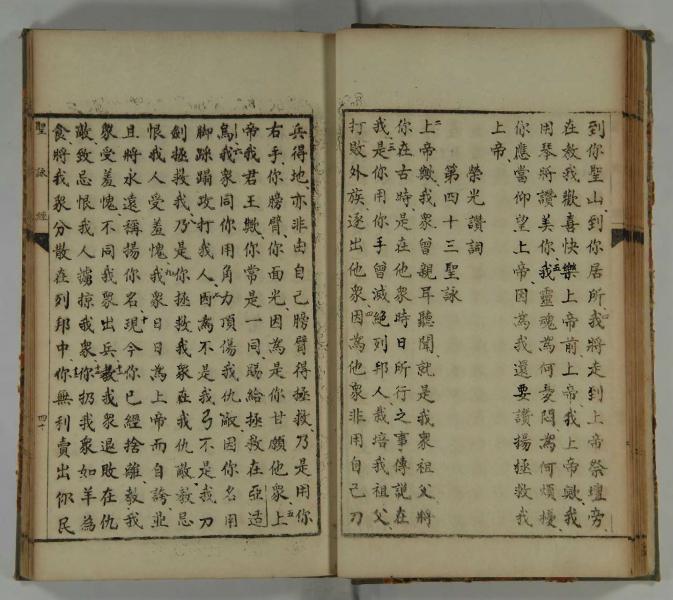 到你聖山到你居所我四將走到上帝祭壇旁
在教我歡喜快樂上帝前上帝我上帝歟我
用琴將讚美你我五靈魂為何憂悶為何煩擾
你應當仰望上帝因為我還要讚揚拯救我
上帝
榮光讚詞
第四十三聖詠
上二帝歟我衆曾親耳聽聞就是我衆祖父將
你在古時是在他衆時日所行之事傳說在
我三是你用你手曾滅絕列邦人栽培我祖父
打敗外族逐出他衆因四為他衆非用自己刀
兵得地亦非由自己膀臂得拯救乃是用你
右手你膀臂你面光因為是你甘願他衆上五
帝我君王歟你常是一同賜給拯救在亞适
烏我六衆同你用角力頂傷我仇敵因你名用
脚踩蹋攻打我人因七為不是我弓不是我刀
劍拯救我乃八是你拯救我衆在我仇敵教忌
恨我人受羞愧我九衆日日為上帝而自誇並
且將永遠稱揚你名現十今你已經捨離教我
衆受羞愧不同我衆出兵教我衆退敗在仇
敵致忌恨我人擄掠我衆你扔我衆如羊為
食將我衆分散在列邦中你無利賣出你民
聖詠經
四十